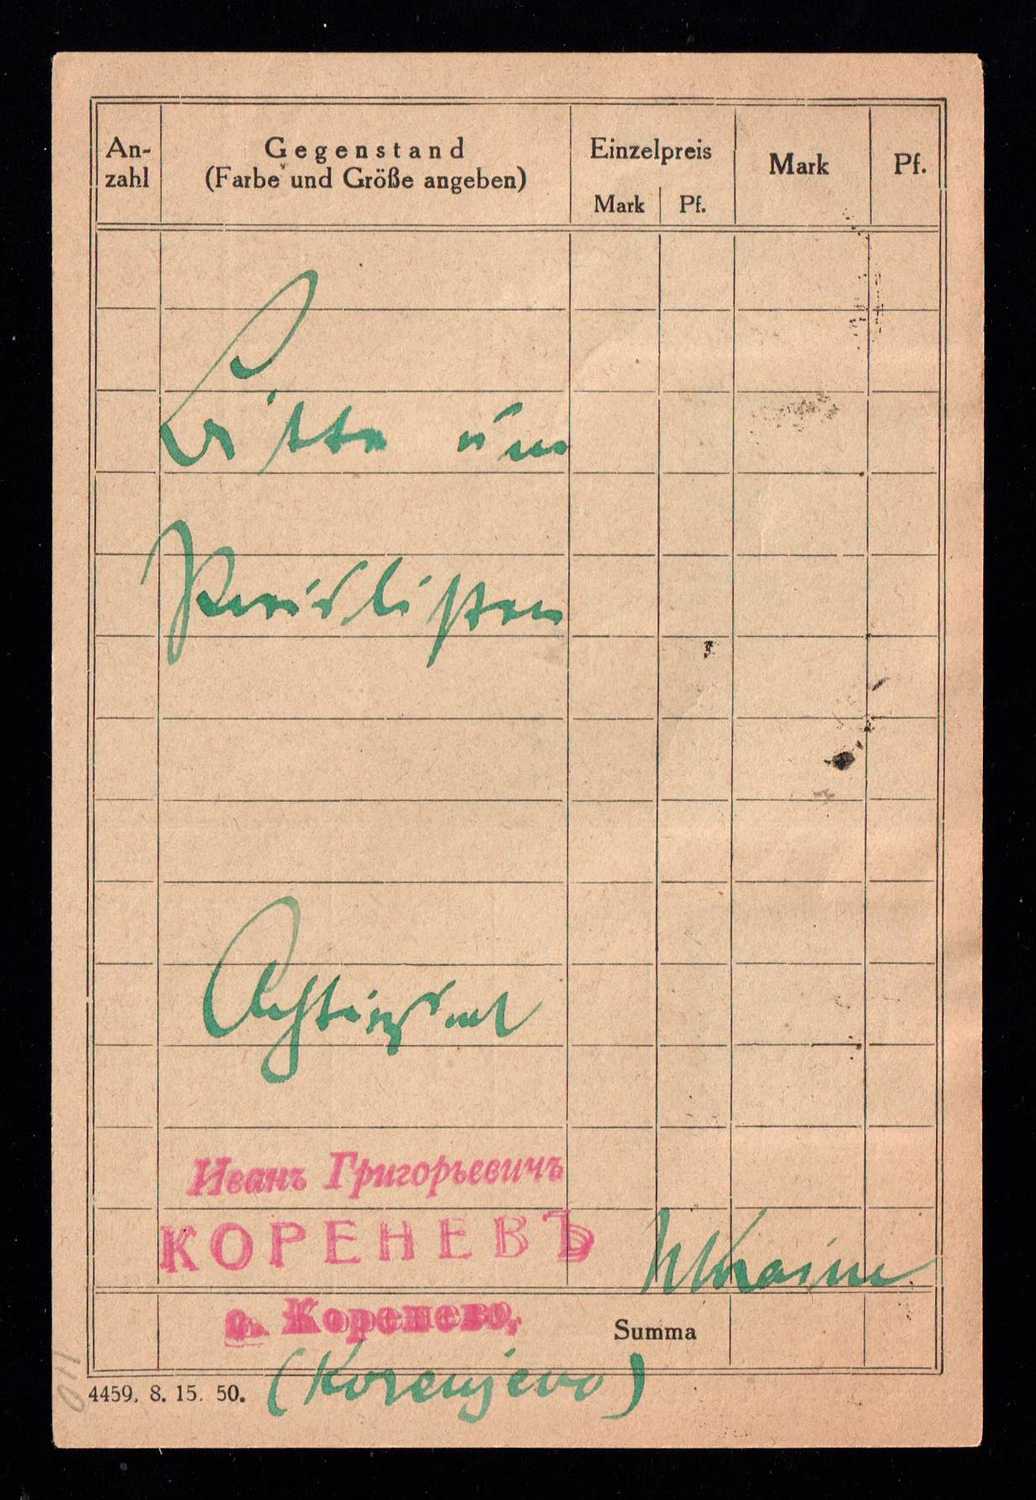 An-
zahl
Gegenstand
(Farbe und Größe angeben)
Einzelpreis
Mark Pf.
Mark
Pf.
Bitte um
Preislisten
Achtungsvoll
Иванъ Григорьевичъ
КОРЕНЕВЪ
с. Коренево,
Ukraine
Summa
(Korenjevo)
4459. 8. 15. 50.
110